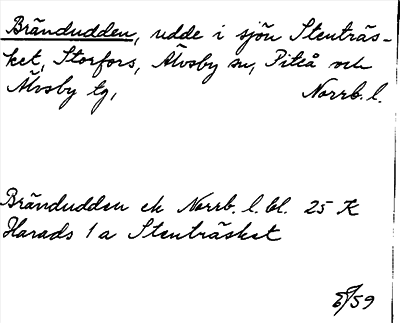 Brändudden, udde i sjön Stenträs-
ket, Storfors, Älvsby sn, Piteå och
Älvsby tg, Norrb. l.
Brändudden ek Norrb. l. bl. 25 K
Harads 1 a Stenträsket
/59